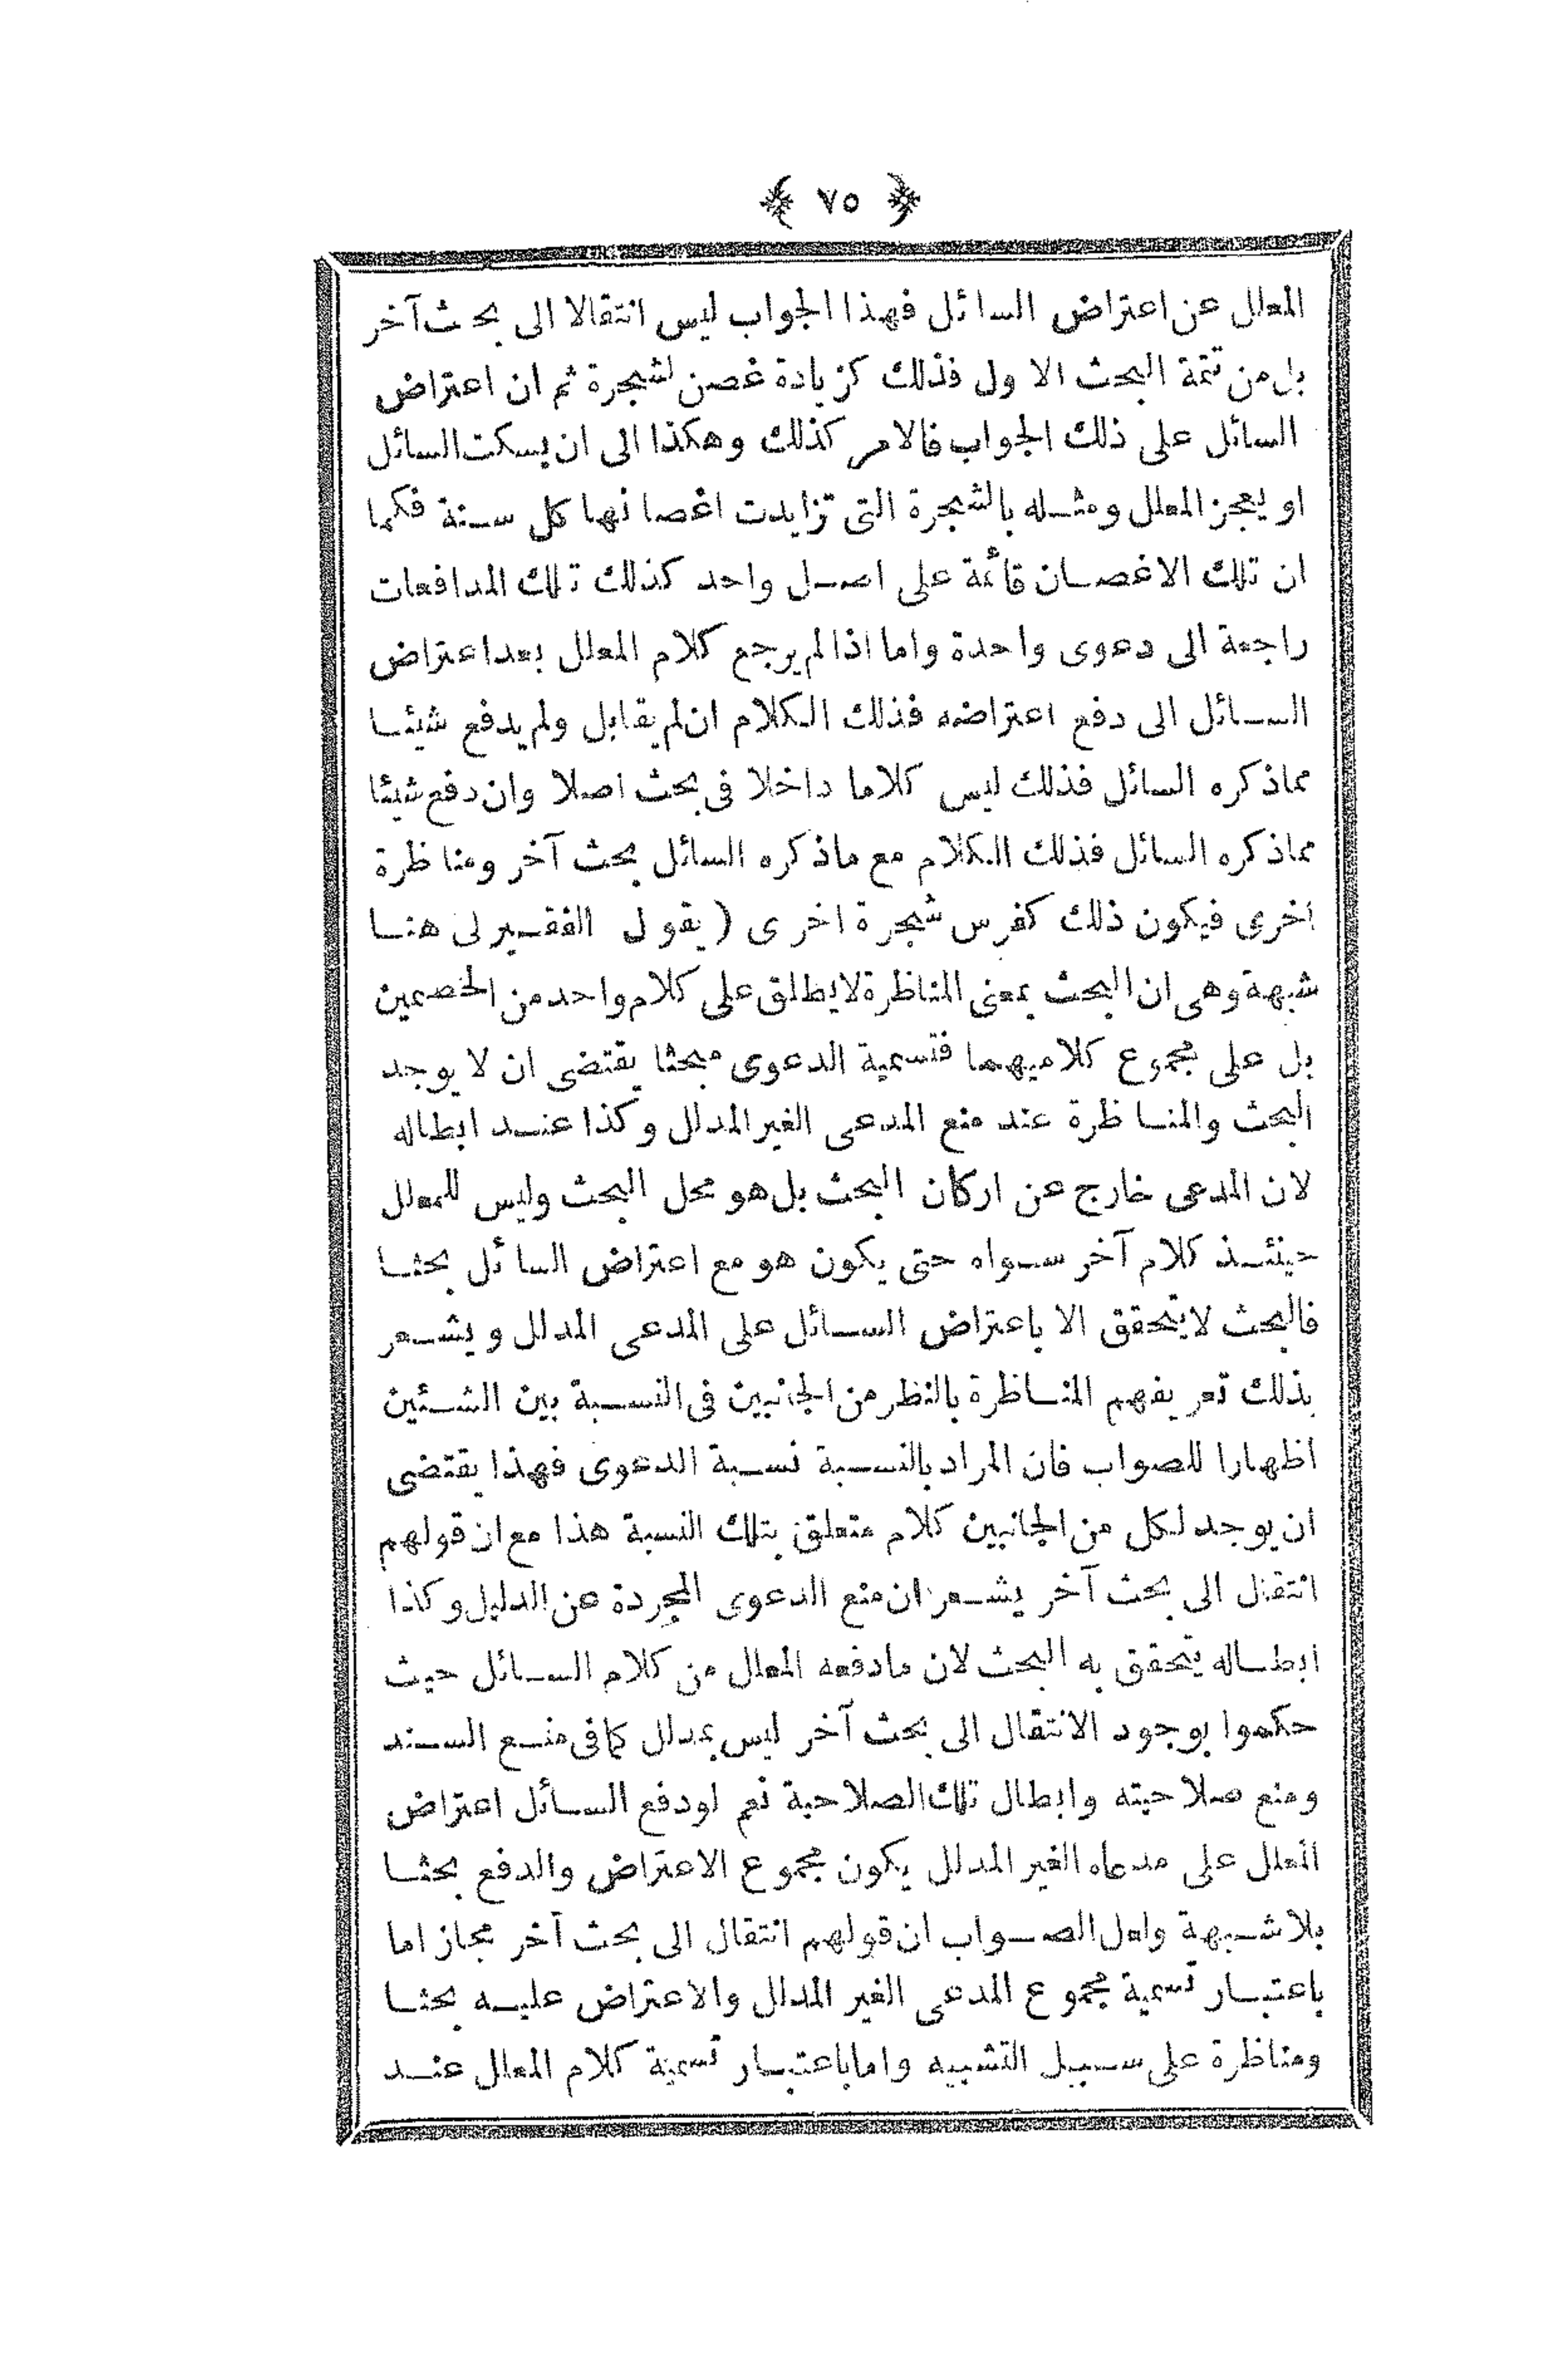 ﴿ ٧٥ ﴾
المعلل عن اعتراض السائل فهذا الجواب ليس انتقالا الى بحث آخر
بل من تتمة البحث الاول فذلك كزيادة غصن لشجرة ثم ان اعتراض
السائل على ذلك الجواب فالامر كذلك وهكذا الى ان يسكت السائل
او يعجز المعلل ومثله بالشجرة التى تزايدت اغصانها كل سنة فكما
ان تلك الاغصان قائمة على اصل واحد كذلك تلك المدافعات
راجعة الى دعوى واحدة واما اذا لم يرجع كلام المعلل بعد اعتراض
السائل الى دفع اعتراضه فذلك الكلام ان لم يقابل ولم يدفع شيئا
مما ذكره السائل فذلك ليس كلاما داخلا فى بحث اصلا وان دفع شيئا
مما ذكره السائل فذلك الكلام مع ما ذكره السائل بحث آخر ومناظرة
اخرى فيكون ذلك كغرس شجرة اخرى (يقول الفقير لى هنا
شبهة وهى ان البحث بمعنى المناظرة لا يطلق على كلام واحد من الخصمين
بل على مجموع كلاميهما فتسمية الدعوى مبحثا يقتضى ان لا يوجد
البحث والمناظرة عند منع المدعى الغير المدلل وكذا عند ابطاله
لان المدعى خارج عن اركان البحث بل هو محل البحث وليس للمعلل
حينئذ كلام آخر سواه حتى يكون هو مع اعتراض السائل بحثا
فالبحث لا يتحقق الا باعتراض السائل على المدعى المدلل ويشعر
بذلك تعريفهم المناظرة بالنظر من الجانبين فى النسبة بين الشيئين
اظهارا للصواب فان المراد بالنسبة نسبة الدعوى فهذا يقتضى
ان يوجد لكل من الجانبين كلام متعلق بتلك النسبة هذا مع ان قولهم
انتقال الى بحث آخر يشعر ان منع الدعوى المجردة عن الدليل وكذا
ابطاله يتحقق به البحث لان ما دفعه المعلل من كلام السائل حيث
حكموا بوجود الانتقال الى بحث آخر ليس بمدلل كما فى منع السند
ومنع صلاحيته وابطال تلك الصلاحية نعم لو دفع السائل اعتراض
المعلل على مدعاه الغير المدلل يكون مجموع الاعتراض والدفع بحثا
بلا شبهة ولعل الصواب ان قولهم انتقال الى بحث آخر مجاز اما
باعتبار تسمية مجموع المدعى الغير المدلل والاعتراض عليه بحثا
ومناظرة على سبيل التشبيه واما باعتبار تسمية كلام المعلل عند